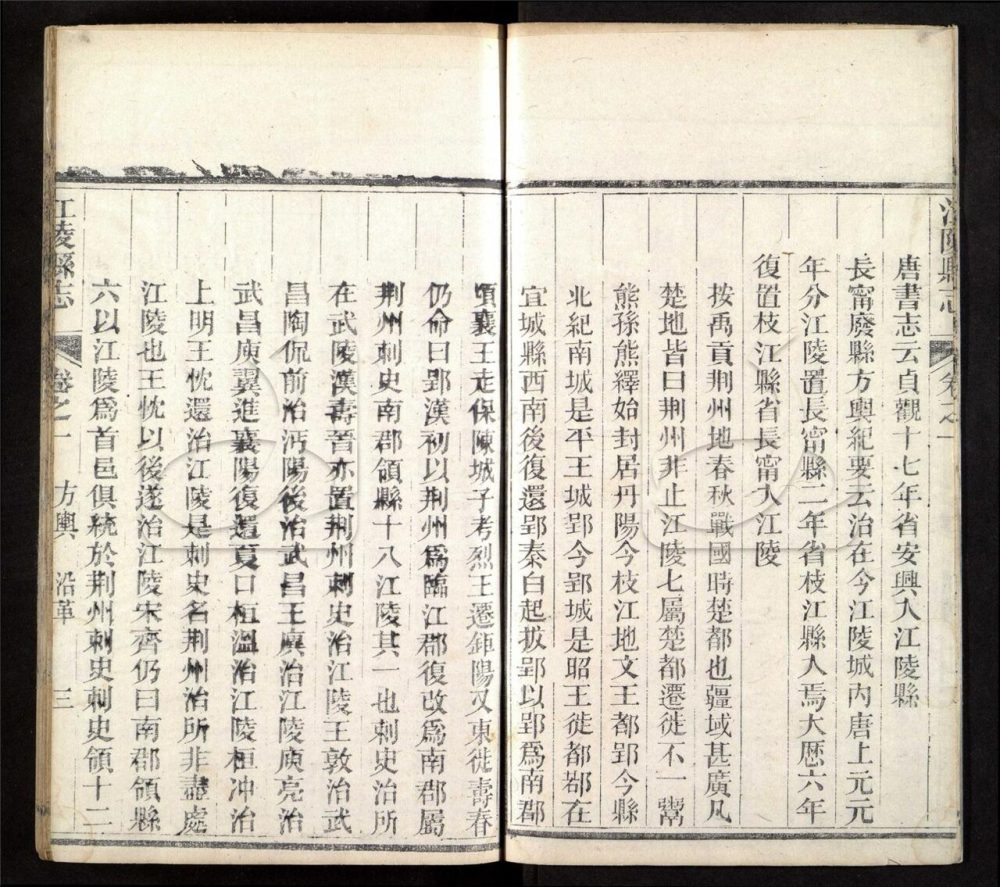 江陵縣志 卷之一
唐書志云貞觀十七年省安興入江陵縣
長甯廢縣方輿紀要云治在今江陵城內唐上元元
年分江陵置長甯縣二年省枝江縣入焉大歴六年
復置枝江縣省長甯入江陵
按禹貢荆州地春秋戰國時楚都也疆域甚廣凡
楚地皆曰荆州非止江陵七屬楚都遷徙不一鬻
熊孫熊繹始封居丹陽今枝江地文王都郢今縣
北紀南城是平王城郢今郢城是昭王徙都鄀在
宜城縣西南後復還郢秦白起拔郢以郢爲南郡
頃襄王走保陳城子考烈王遷鉅陽又東徙壽春
仍命曰郢漢初以荆州爲臨江郡復改爲南郡屬
荆州刺史南郡領縣十八江陵其一也刺史治所
在武陵漢壽晉亦置荆州刺史治江陵王敦治武
昌陶侃前治沔陽後治武昌王廙治江陵庾亮治
武昌庾翼進襄陽復還夏口桓溫治江陵桓冲治
上明王忱還治江陵是刺史名荆州治所非壹處
江陵也王忱以後遂治江陵宋齊仍曰南郡領縣
六以江陵爲首邑俱統於荆州刺史刺史領十二
江陵縣志 卷之一 方輿 沿革 三